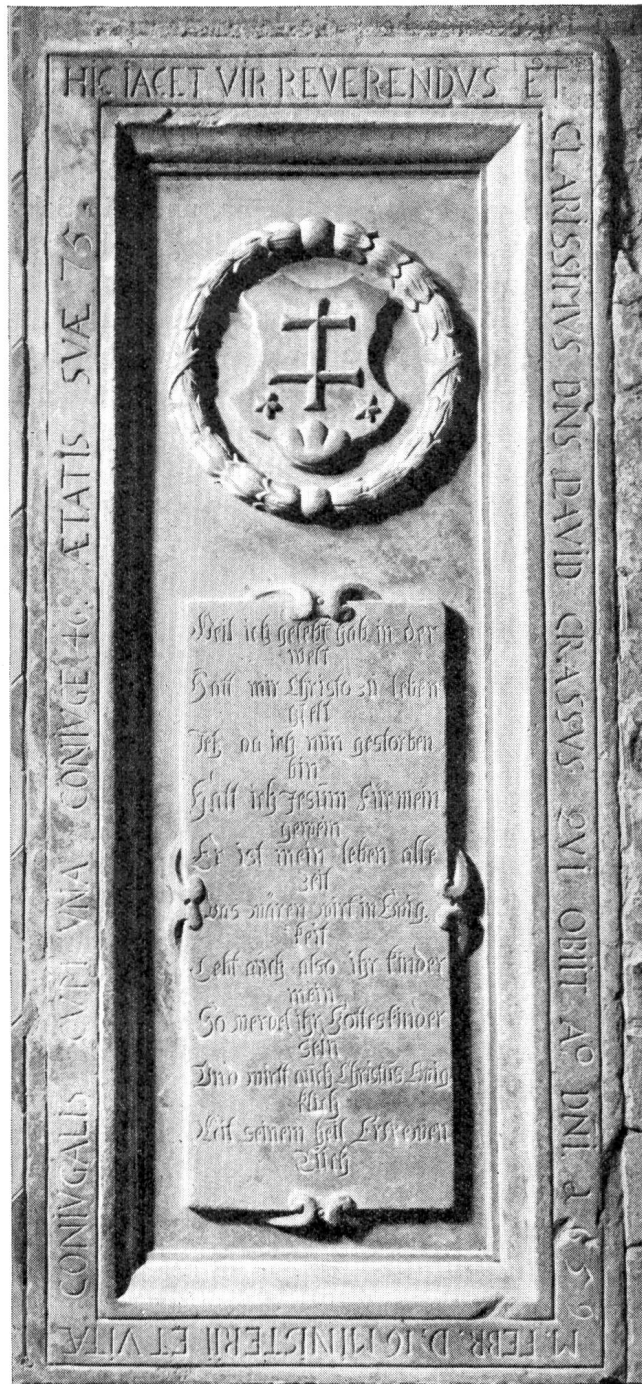 HIC IACET VIR REVERENDVS ET
CLARISSIMVS DNS DAVID CRASSVS QVI OBIIT A° DNI 1659
M. FEBR. D. 16 MINISTERII ET VITÆ
CONIVGALIS CVM VNA CONIVGE 46. ÆTATIS SVÆ 75.
Weil ich gelebt hab in der
welt
Hatt mir Christo zu leben
gfelt
Jetz da ich nun gestorben
bin
Halt ich Jesum für mein
gewein
Er ist mein leben alle
zeit
Das wären wirt in Ewig
keit
Lebt auch also ihr kinder
mein
So werdet ihr Gotteskinder
sein
Und wirtt auch Christus Ewig
klich
Mit seinem heil